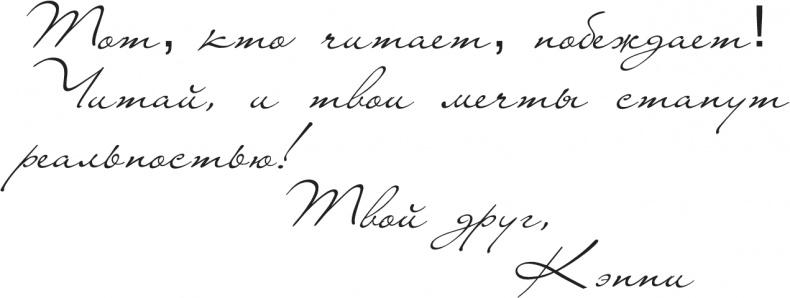 Тот, кто читает, побеждает!
Читай, и твои мечты станут
реальностью!
Твой друг,
Кэппи